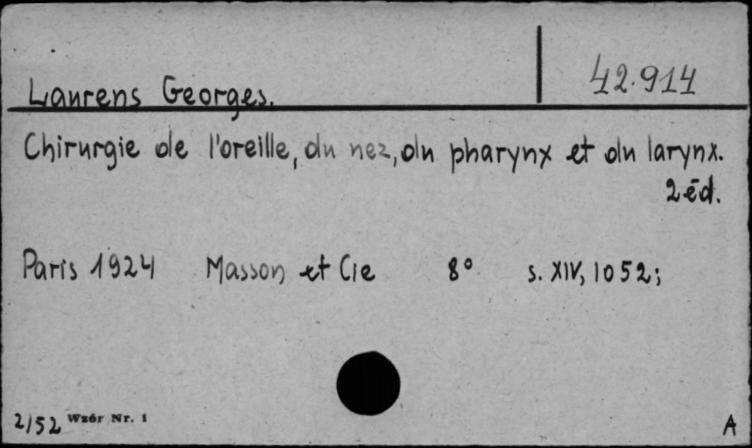 42.914
Laurens Georges.
Chirurgie de l'oreille, du nez, du pharynx et du larynx.
2 éd.
Paris 1924 Masson et Cie 8° s. XIV, 1052;
2/52 Wzór Nr. 1 A